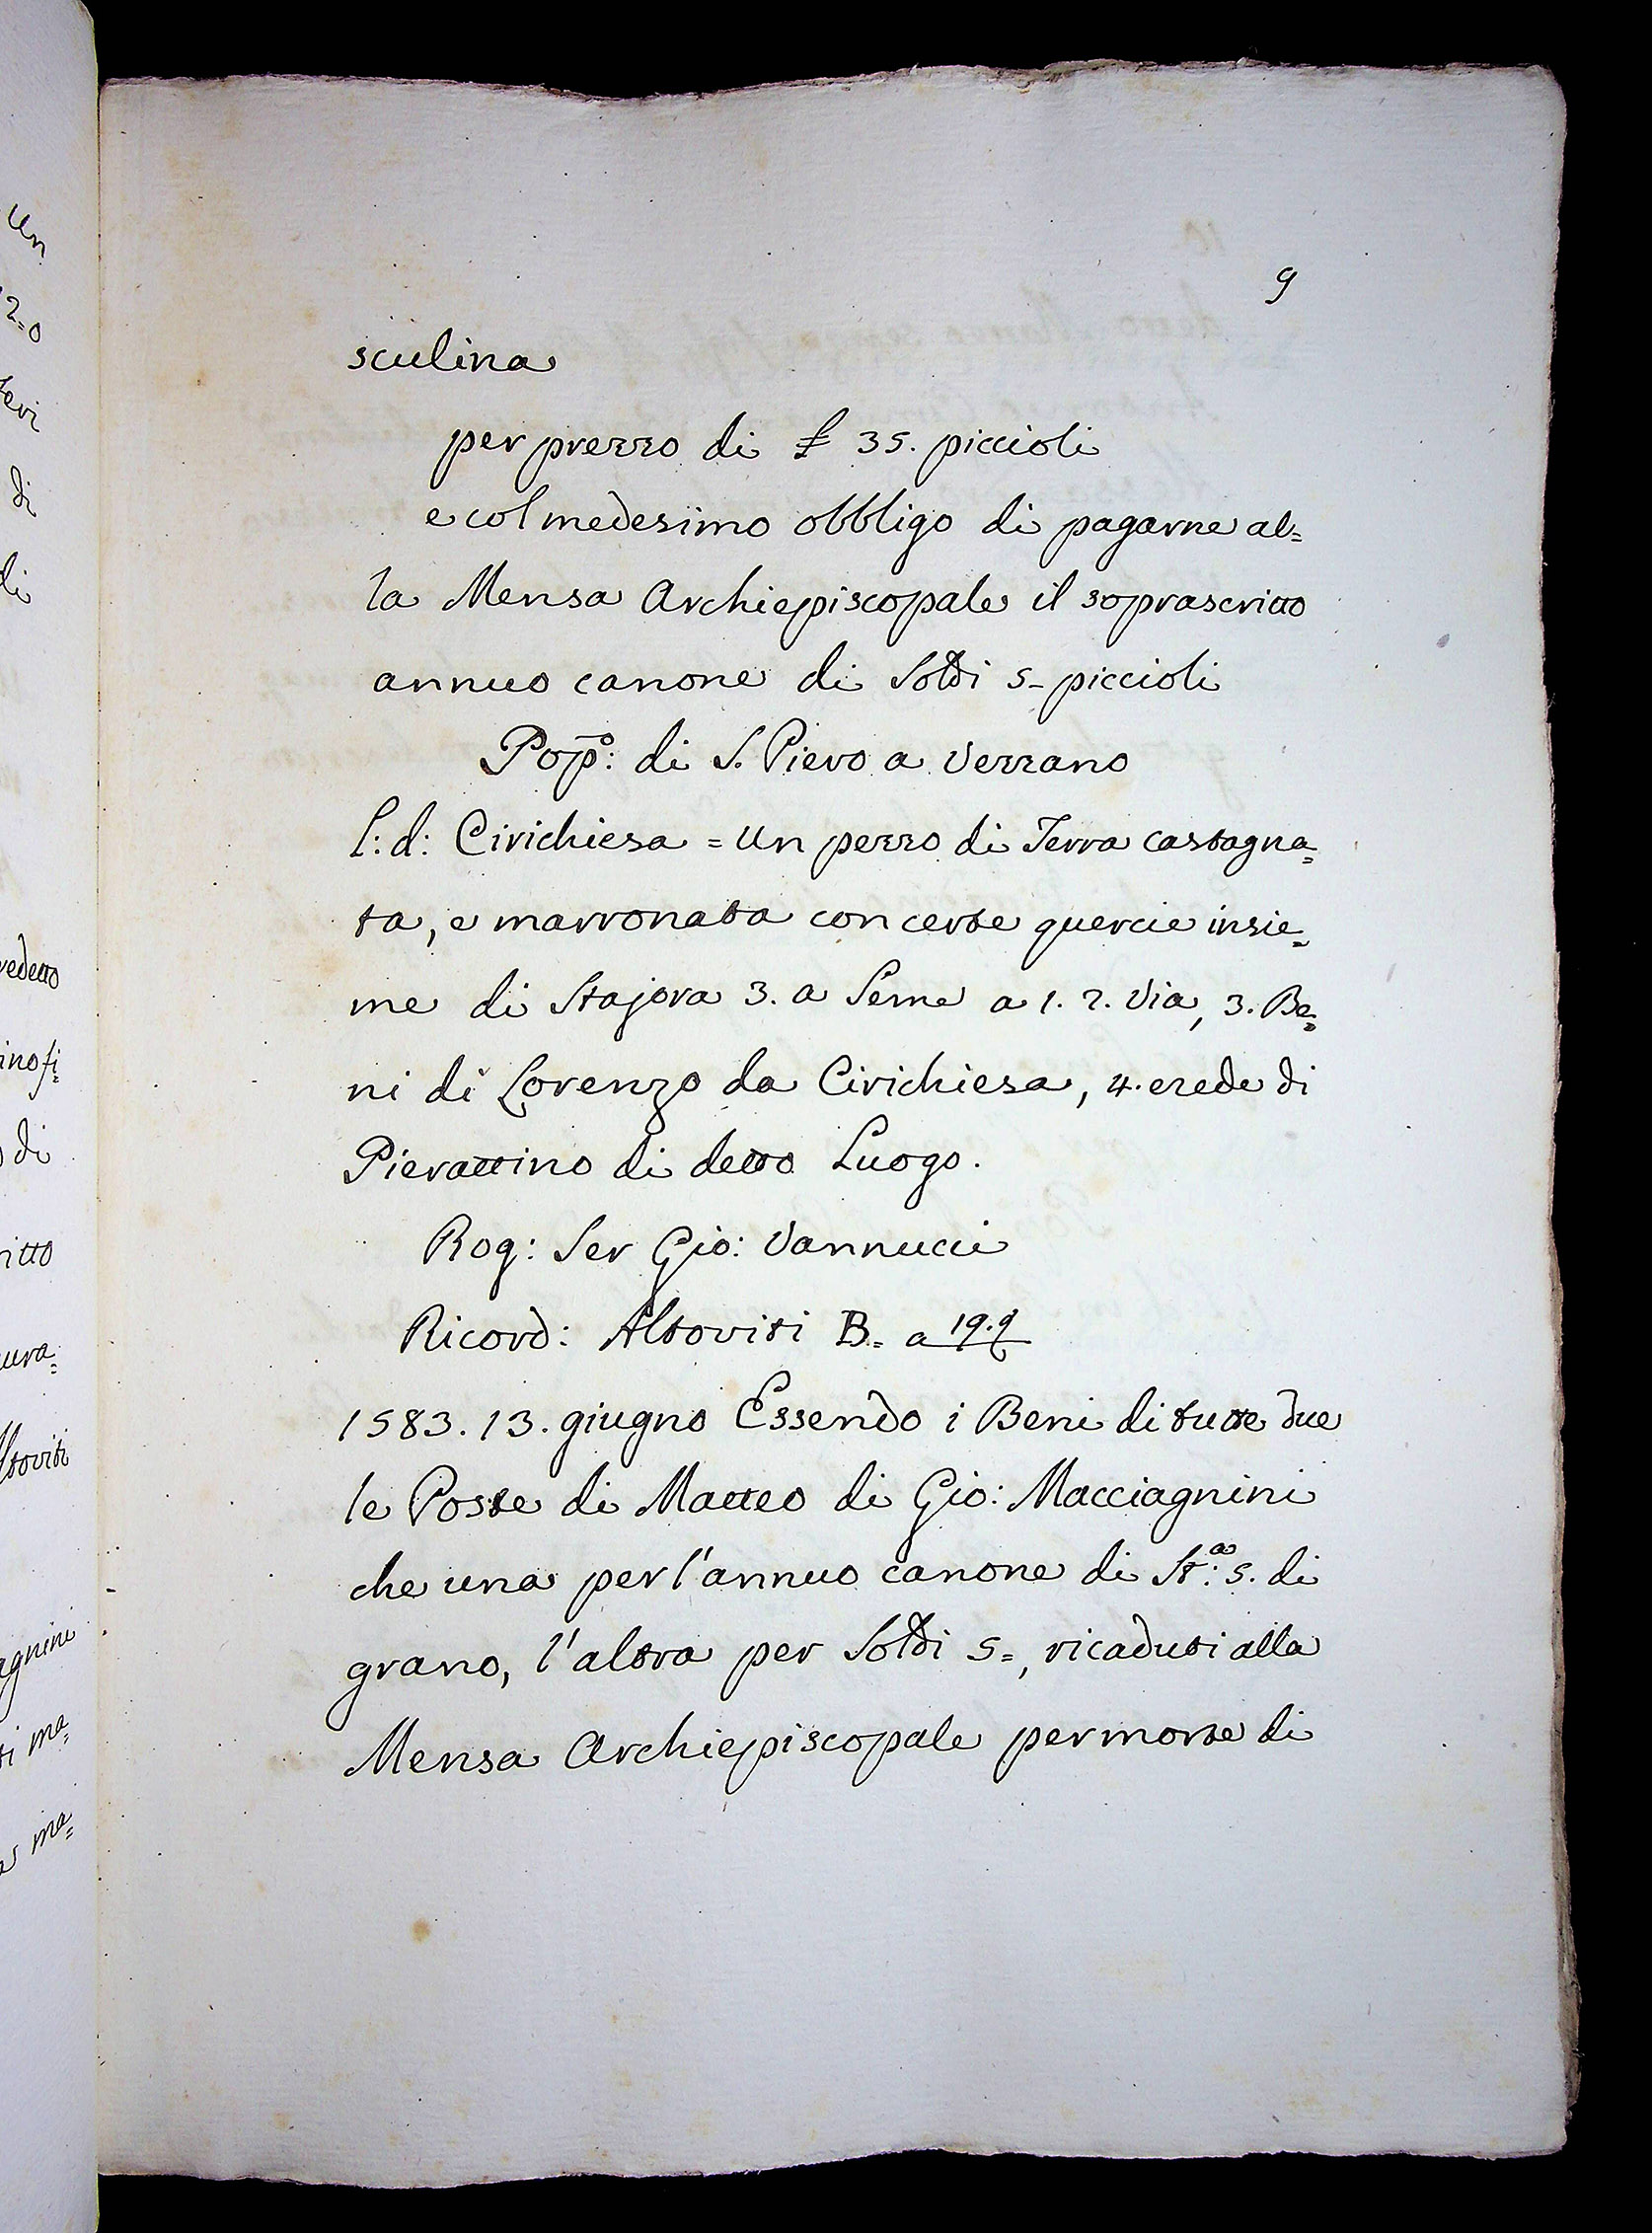 9
sculina
per prezzo di £ 35. piccioli
e col medesimo obbligo di pagarne al=
la Mensa Archiepiscopale il soprascritto
annuo canone di Soldi 5- piccioli
Popo: di S. Piero a Verzano
l: d: Cirichiesa = Un pezzo di Terra castagna=
ta, e marronata con certe quercie insie=
me di Stajora 3. a Seme a 1. 2. Via, 3. Be=
ni di Lorenzo da Cirichiesa, 4. erede di
Pierattino di detto Luogo.
Rog: Ser Gio: Vannucci
Ricord: Altoviti B. = a 19.9
1583. 13. giugno Essendo i Beni di tutte due
le Poste di Matteo di Gio: Macciagnini
che una per l'annuo canone di Sta: 5. di
grano, l'altra per Soldi 5=, ricaduti alla
Mensa Archiepiscopale per morte di
Un
2=0
di
di
vedetto
ino fi=
di
ritto
ura=
ltoviti
agnini
ti ma=
ma=